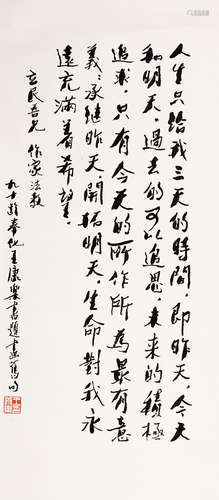 人生只给我三天的時間，即昨天，今天
和明天，過去的可以追思，未来的積極
追求，只有今天的所作所為最有意
義；承继昨天，開拓明天，生命對我永
遠充滿着希望。
立民吾兄 作家法教
九十齡叟化王康樂書題畫舊句